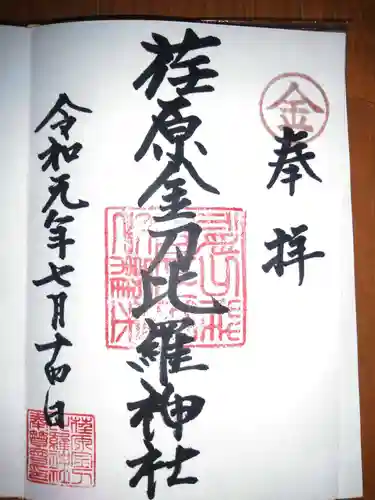 金
奉拝
荏原金刀比羅神社
令和元年七月十四日